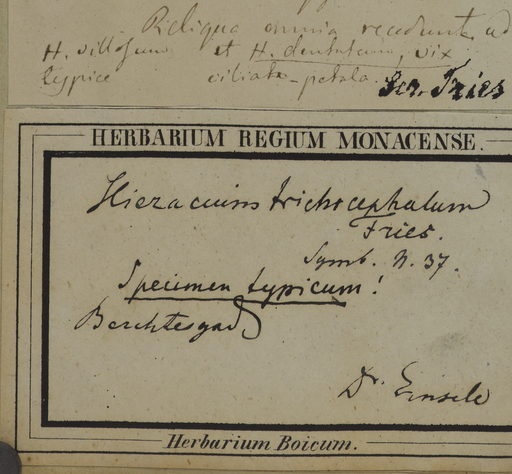 Reliqua omnia recedunt ad
H. villosum et H. dentatum, vix
typice ciliata petala.
Scr. Fries
HERBARIUM REGIUM MONACENSE.
Hieracium trichocephalum
Fries.
Symb. N. 37.
Specimen typicum!
Berchtesgad
Dr. Einsele
Herbarium Boicum.